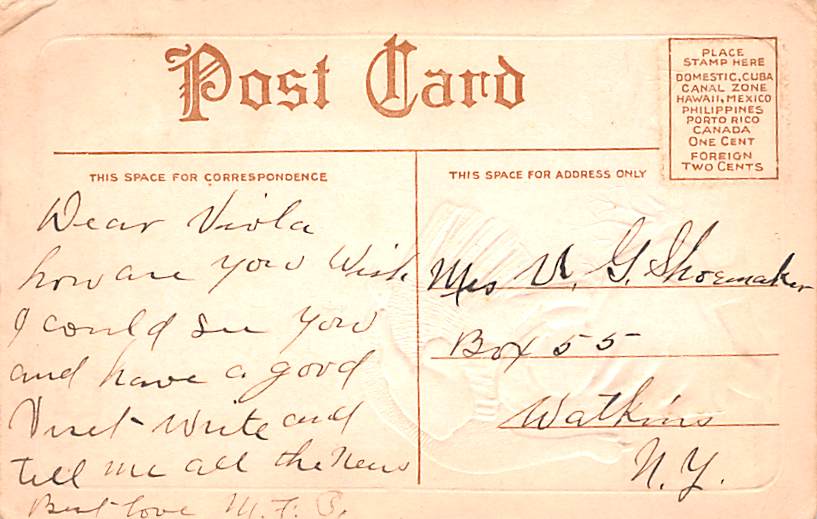 Post Card
PLACE
STAMP HERE
DOMESTIC, CUBA
CANAL ZONE
HAWAII, MEXICO
PHILIPPINES
PORTO RICO
CANADA
ONE CENT
FOREIGN
TWO CENTS
THIS SPACE FOR CORRESPONDENCE
Dear Viola
how are you Wish
I could see you
and have a good
Viset write and
tell me all the News
Best love M. F. B.
THIS SPACE FOR ADDRESS ONLY
Mrs V. G. Shoemaker
Box 55
Watkins
N. Y.